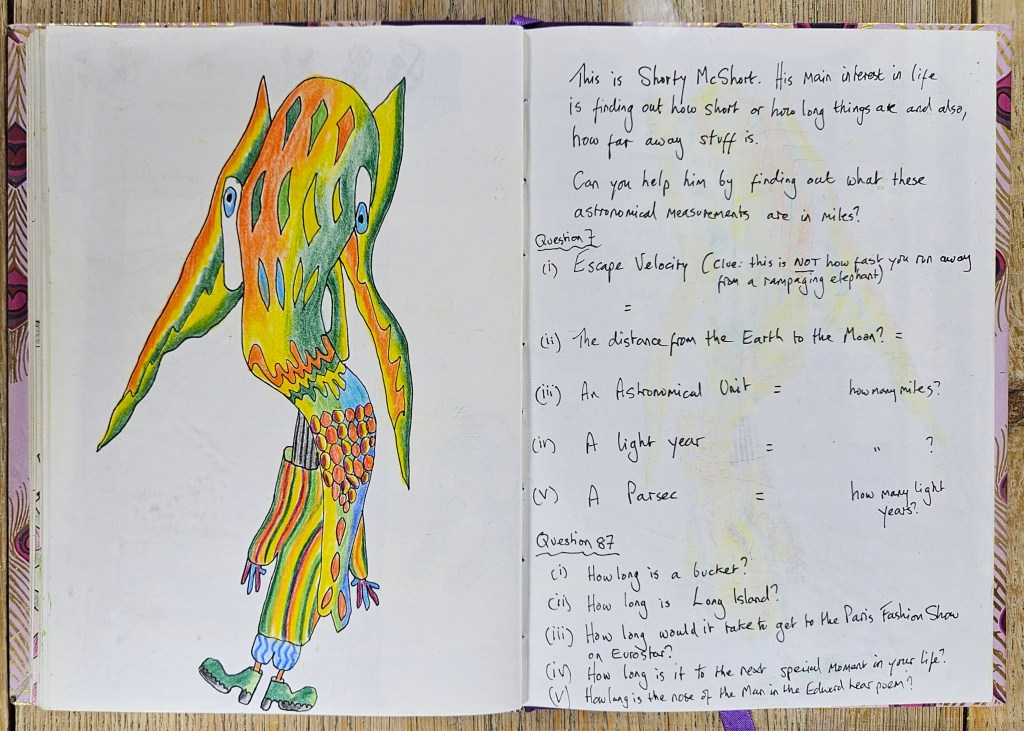 This is Shorty McShort. His main interest in life
is finding out how short or how long things are and also,
how far away stuff is.
Can you help him by finding out what these
astronomical measurements are in miles?
Question 7
(i) Escape Velocity (Clue: this is NOT how fast you run away
from a rampaging elephant)
=
(ii) The distance from the Earth to the Moon? =
(iii) An Astronomical Unit = how many miles?
(iv) A light year = " ?
(V) A Parsec = how many light
years?
Question 87
(i) How long is a bucket?
(ii) How long is Long Island?
(iii) How long would it take to get to the Paris Fashion Show
on Eurostar?
(iv) How long is it to the next special moment in your life?
(V) How long is the nose of the Man in the Edward Lear poem?